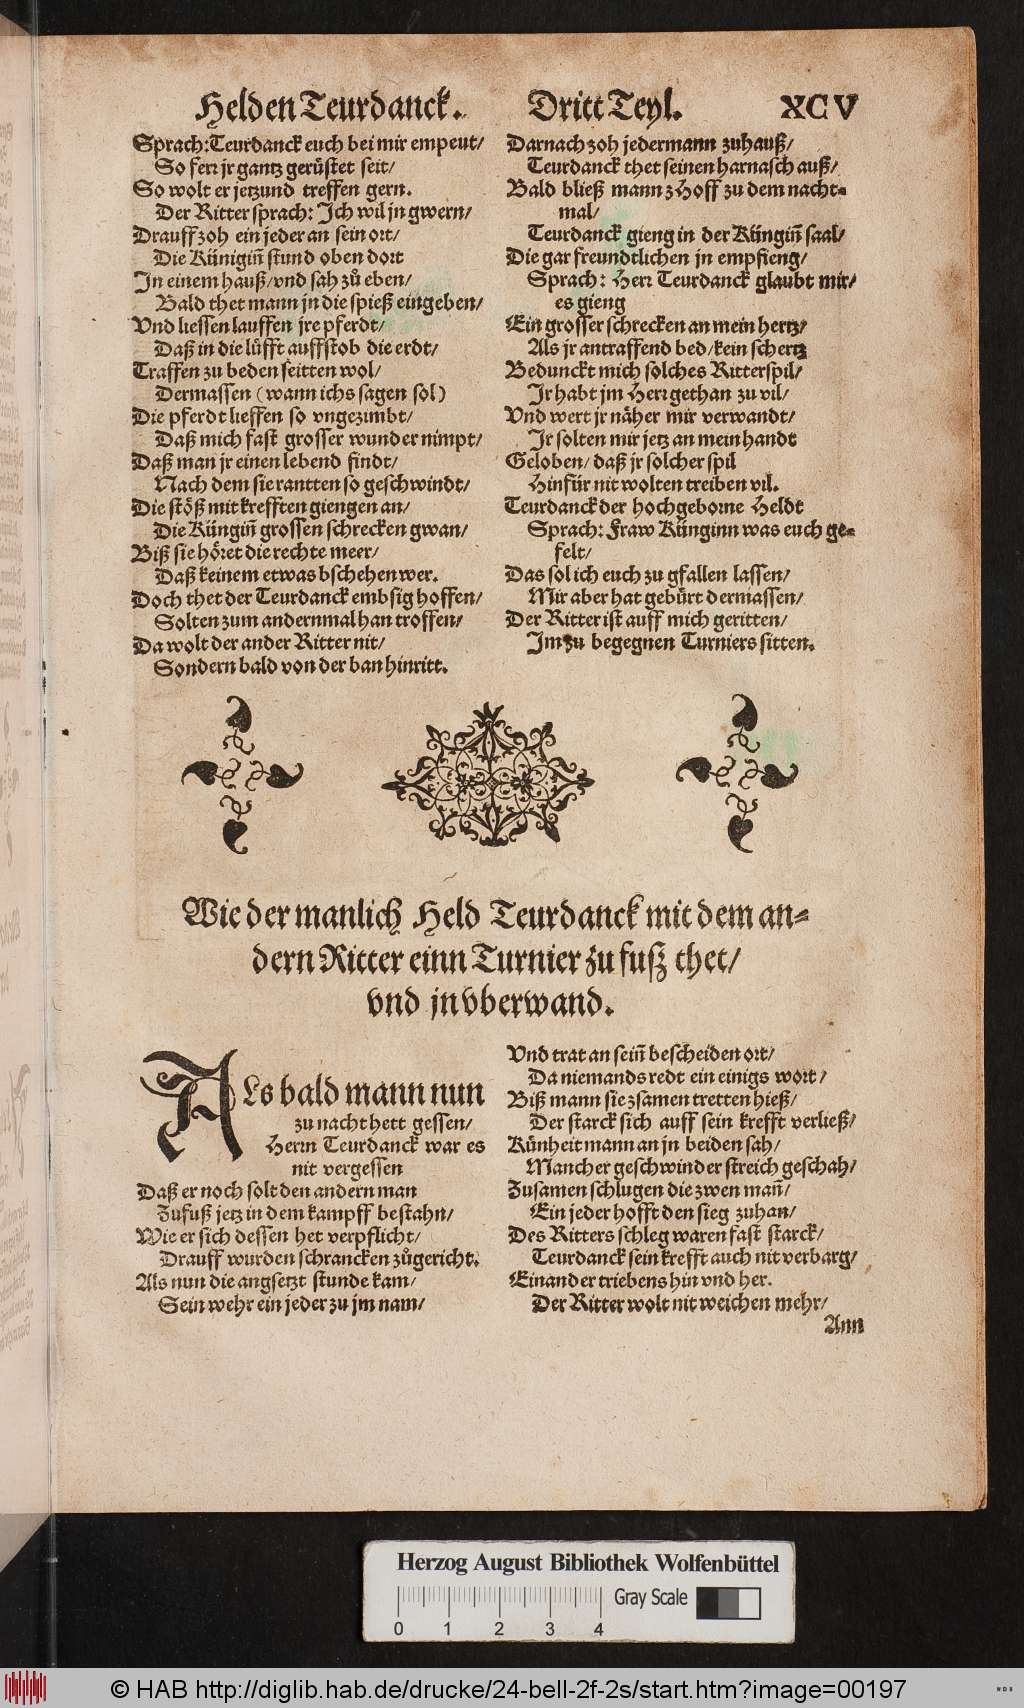 Helden Teurdanck. Dritt Teyl. XCV
Sprach: Teurdanck euch bei mir empeut/
So ferr jr gantz gerüstet seit/
So wolt er jetzund treffen gern.
Der Ritter sprach: Ich wil jn gwern/
Drauff zoh ein jeder an sein ort/
Die Künigiñ stund oben dort
In einem hauß/vnd sah zů eben/
Bald thet mann jn die spieß eingeben/
Vnd liessen lauffen jre pferdt/
Daß in die lüfft auffstob die erdt/
Traffen zu beden seitten wol/
Dermassen (wann ichs sagen sol)
Die pferdt lieffen so vngezimbt/
Daß mich fast grosser wunder nimpt/
Daß man jr einen lebend findt/
Nach dem sie rantten so geschwindt/
Die stöß mit krefften giengen an/
Die Küngiñ grossen schrecken gwan/
Biß sie höret die rechte meer/
Daß keinem etwas bschehen wer.
Doch thet der Teurdanck embsig hoffen/
Solten zum andernmal han troffen/
Da wolt der ander Ritter nit/
Sondern bald von der ban hinritt.
Darnach zoh jedermann zuhauß/
Teurdanck thet seinen harnasch auß/
Bald bließ mann z Hoff zu dem nacht-
mal/
Teurdanck gieng in der Küngiñ saal/
Die gar freundtlichen jn empfieng/
Sprach: Herr Teurdanck glaubt mir/
es gieng
Ein grosser schrecken an mein hertz/
Als jr antraffend bed/kein schertz
Bedunckt mich solches Ritterspil/
Jr habt jm Herr gethan zu vil/
Vnd wert jr näher mir verwandt/
Jr solten mir jetz an mein handt
Geloben/ daß jr solcher spil
Hinfür nit wolten treiben vil.
Teurdanck der hochgeborne Heldt
Sprach: Fraw Künginn was euch ge-
felt/
Das sol ich euch zu gfallen lassen/
Mir aber hat gebürt dermassen/
Der Ritter ist auff mich geritten/
Jm zu begegnen Turniers sitten.
Wie der manlich Held Teurdanck mit dem an-
dern Ritter einn Turnier zu fusz thet/
vnd jn vberwand.
Als bald mann nun
zu nacht hett gessen/
Herrn Teurdanck war es
nit vergessen
Daß er noch solt den andern man
Zufuß jetz in dem kampff bestahn/
Wie er sich dessen het verpflicht/
Drauff wurden schrancken zůgericht.
Als nun die angsetzt stunde kam/
Sein wehr ein jeder zu jm nam/
Vnd trat an seiñ bescheiden ort/
Da niemands redt ein einigs wort/
Biß mann sie zsamen tretten hieß/
Der starck sich auff sein krefft verließ/
Künheit mann an jn beiden sah/
Mancher geschwinder streich geschah/
Zusamen schlugen die zwen mañ/
Ein jeder hofft den sieg zuhan/
Des Ritters schleg waren fast starck/
Teurdanck sein krefft auch nit verbarg/
Einander triebens hin vnd her.
Der Ritter wolt nit weichen mehr/
Ann
Herzog August Bibliothek Wolfenbüttel
Gray Scale
0 1 2 3 4
© HAB http://diglib.hab.de/drucke/24-bell-2f-2s/start.htm?image=00197